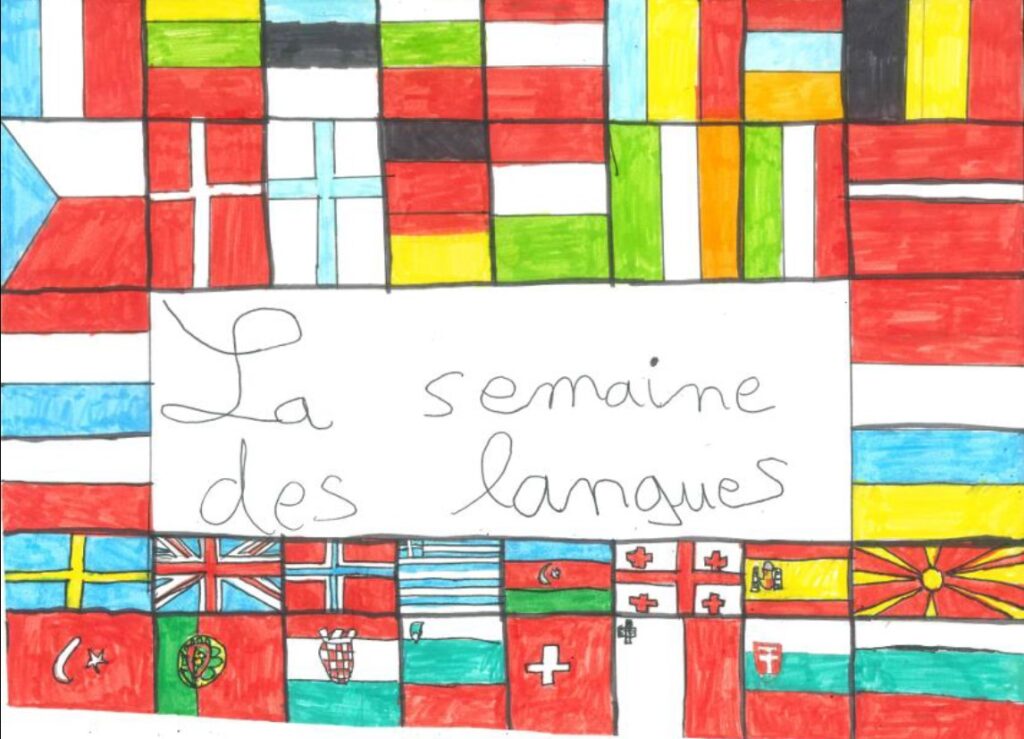 La semaine
des langues